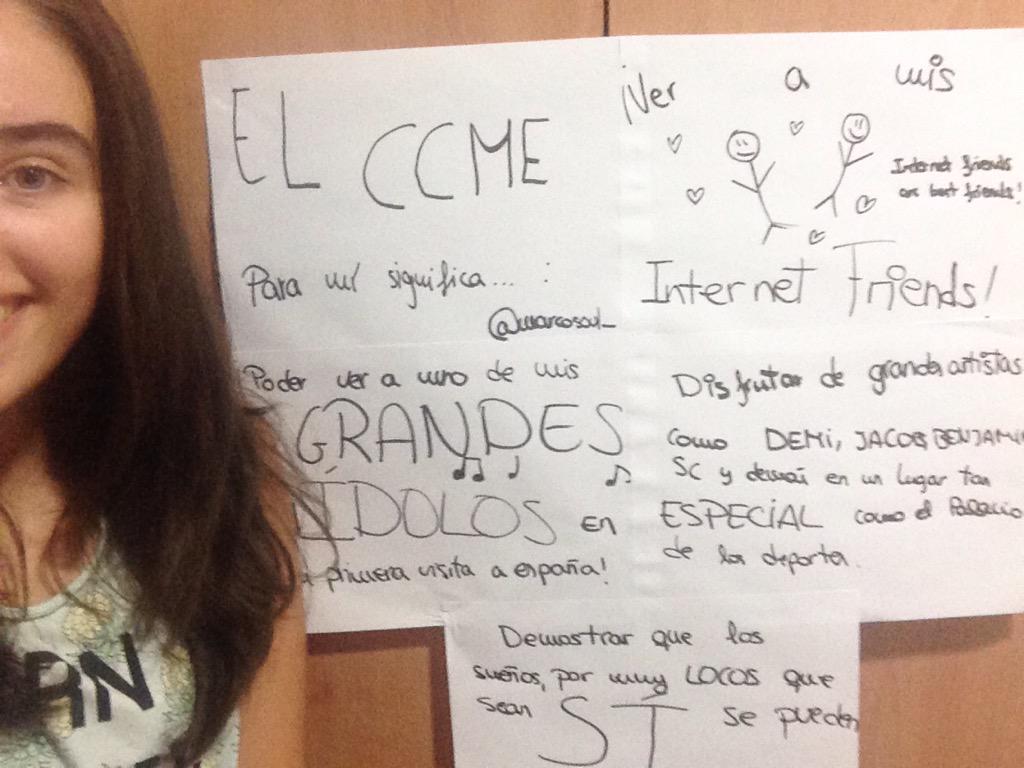 EL CCME
Para mí significa... :
@marcosoul_
Poder ver a uno de mis
GRANDES
ÍDOLOS en
primera visita a españa!
¡Ver a mis
Internet friends
are best friends!
Internet Friends!
Disfrutar de grandes artistas
como DEMI, JACOB, BENJAMIN
SC y demás en un lugar tan
ESPECIAL como el Palacio
de los deportes.
Demostrar que los
sueños, por muy LOCOS que
sean SI se pueden
RN